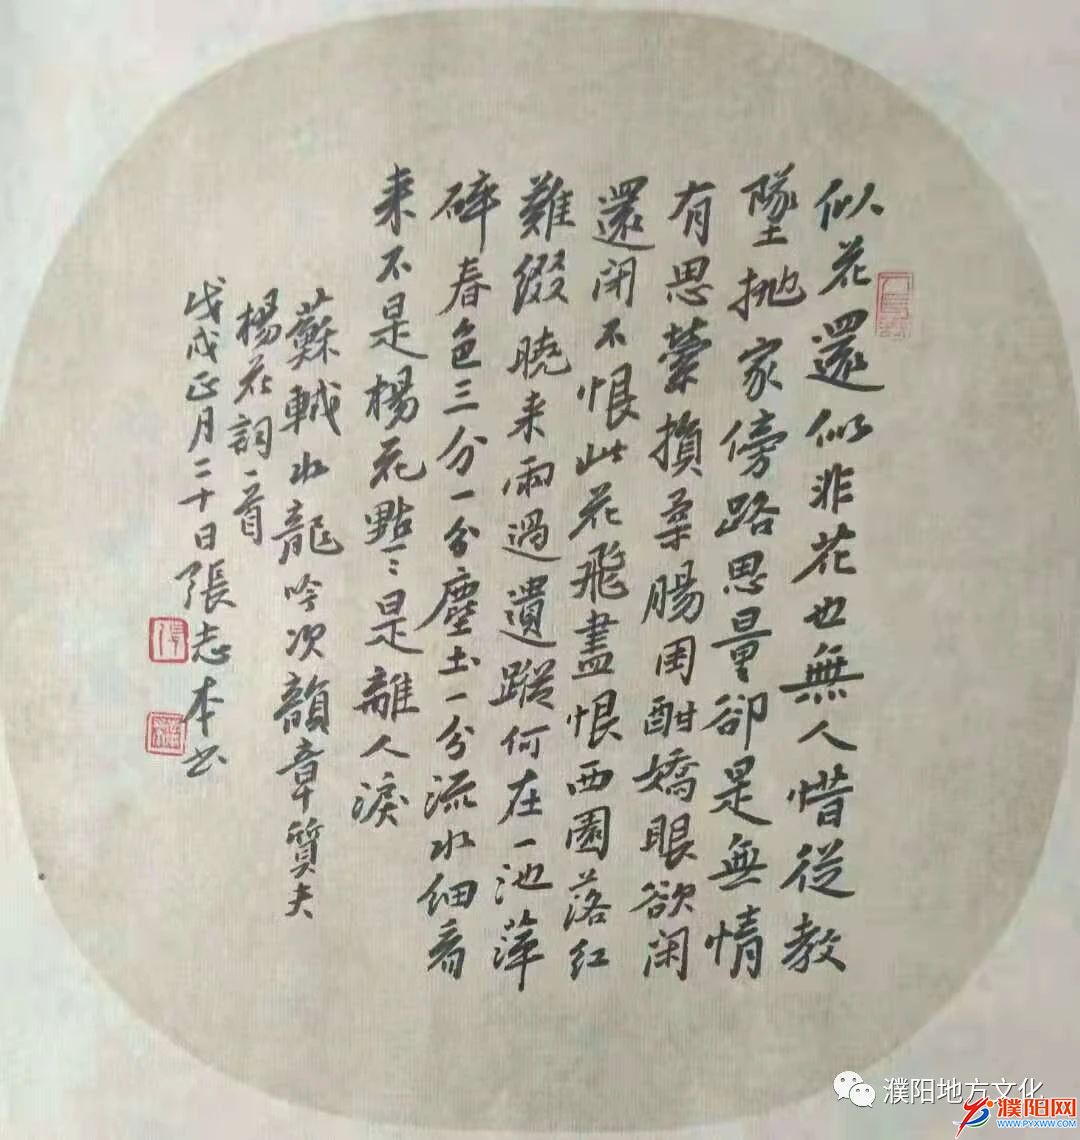 似花還似非花也無人惜從教
墜抛家傍路思量卻是無情
有思縈損柔腸困酣嬌眼欲閑
還閉不恨此花飛盡恨西園落紅
難綴曉来雨過遺蹤何在一池萍
碎春色三分一分塵土一分流水細看
来不是楊花點〻是離人淚
蘇軾水龍吟次韻章質夫
楊花詞一首
戊戌正月二十日張志本书
濮阳地方文化
濮阳网
WWW.PYXWW.COM